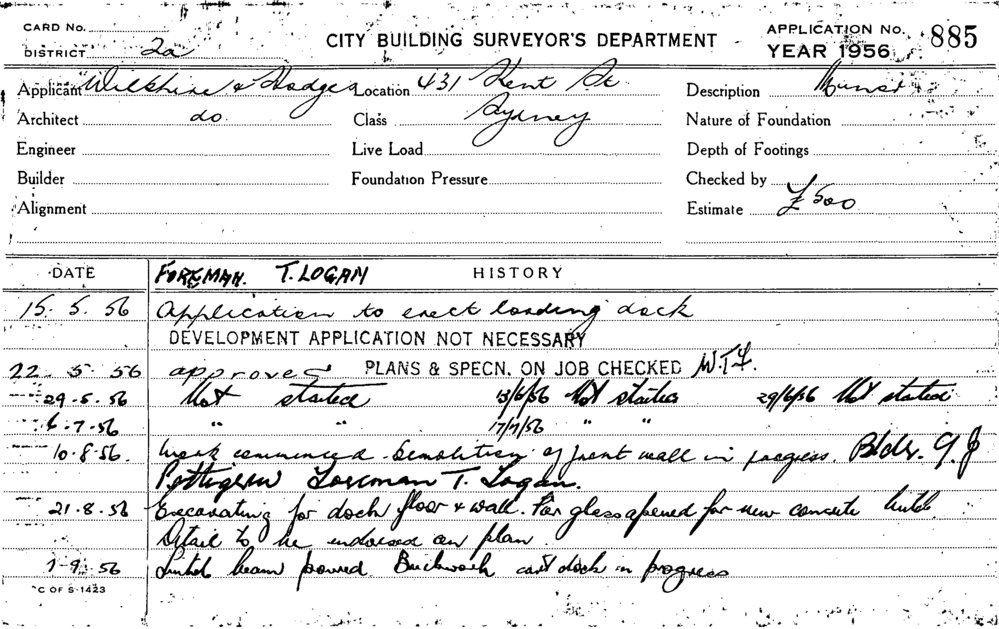 CARD No.
DISTRICT 2a
CITY BUILDING SURVEYOR'S DEPARTMENT
APPLICATION No. 885
YEAR 1956
Applicant Wilkshire & Hodges Location 431 Kent St Description
Architect do. Class Sydney Nature of Foundation
Engineer Live Load Depth of Footings
Builder Foundation Pressure Checked by
Alignment Estimate £500
DATE FOREMAN. T. LOGAN HISTORY
15. 5. 56 Application to erect loading dock
DEVELOPMENT APPLICATION NOT NECESSARY
22 5 56 approved PLANS & SPECN. ON JOB CHECKED
29.5.56 Not started 13/6/56 Not started 29/6/56 Not started
6.7.56 " " 17/7/56 " "
10.8.56. Work commenced. Demolition of front wall in progress. Bldr. G. J
Pettigrew Foreman T. Logan.
21.8.56 Excavating for dock floor & wall. opened for new concrete lintel
Detail to be endorsed on plan
7-9-56 Lintel beam poured. Brickwork cart dock in progress
C OF S-1423